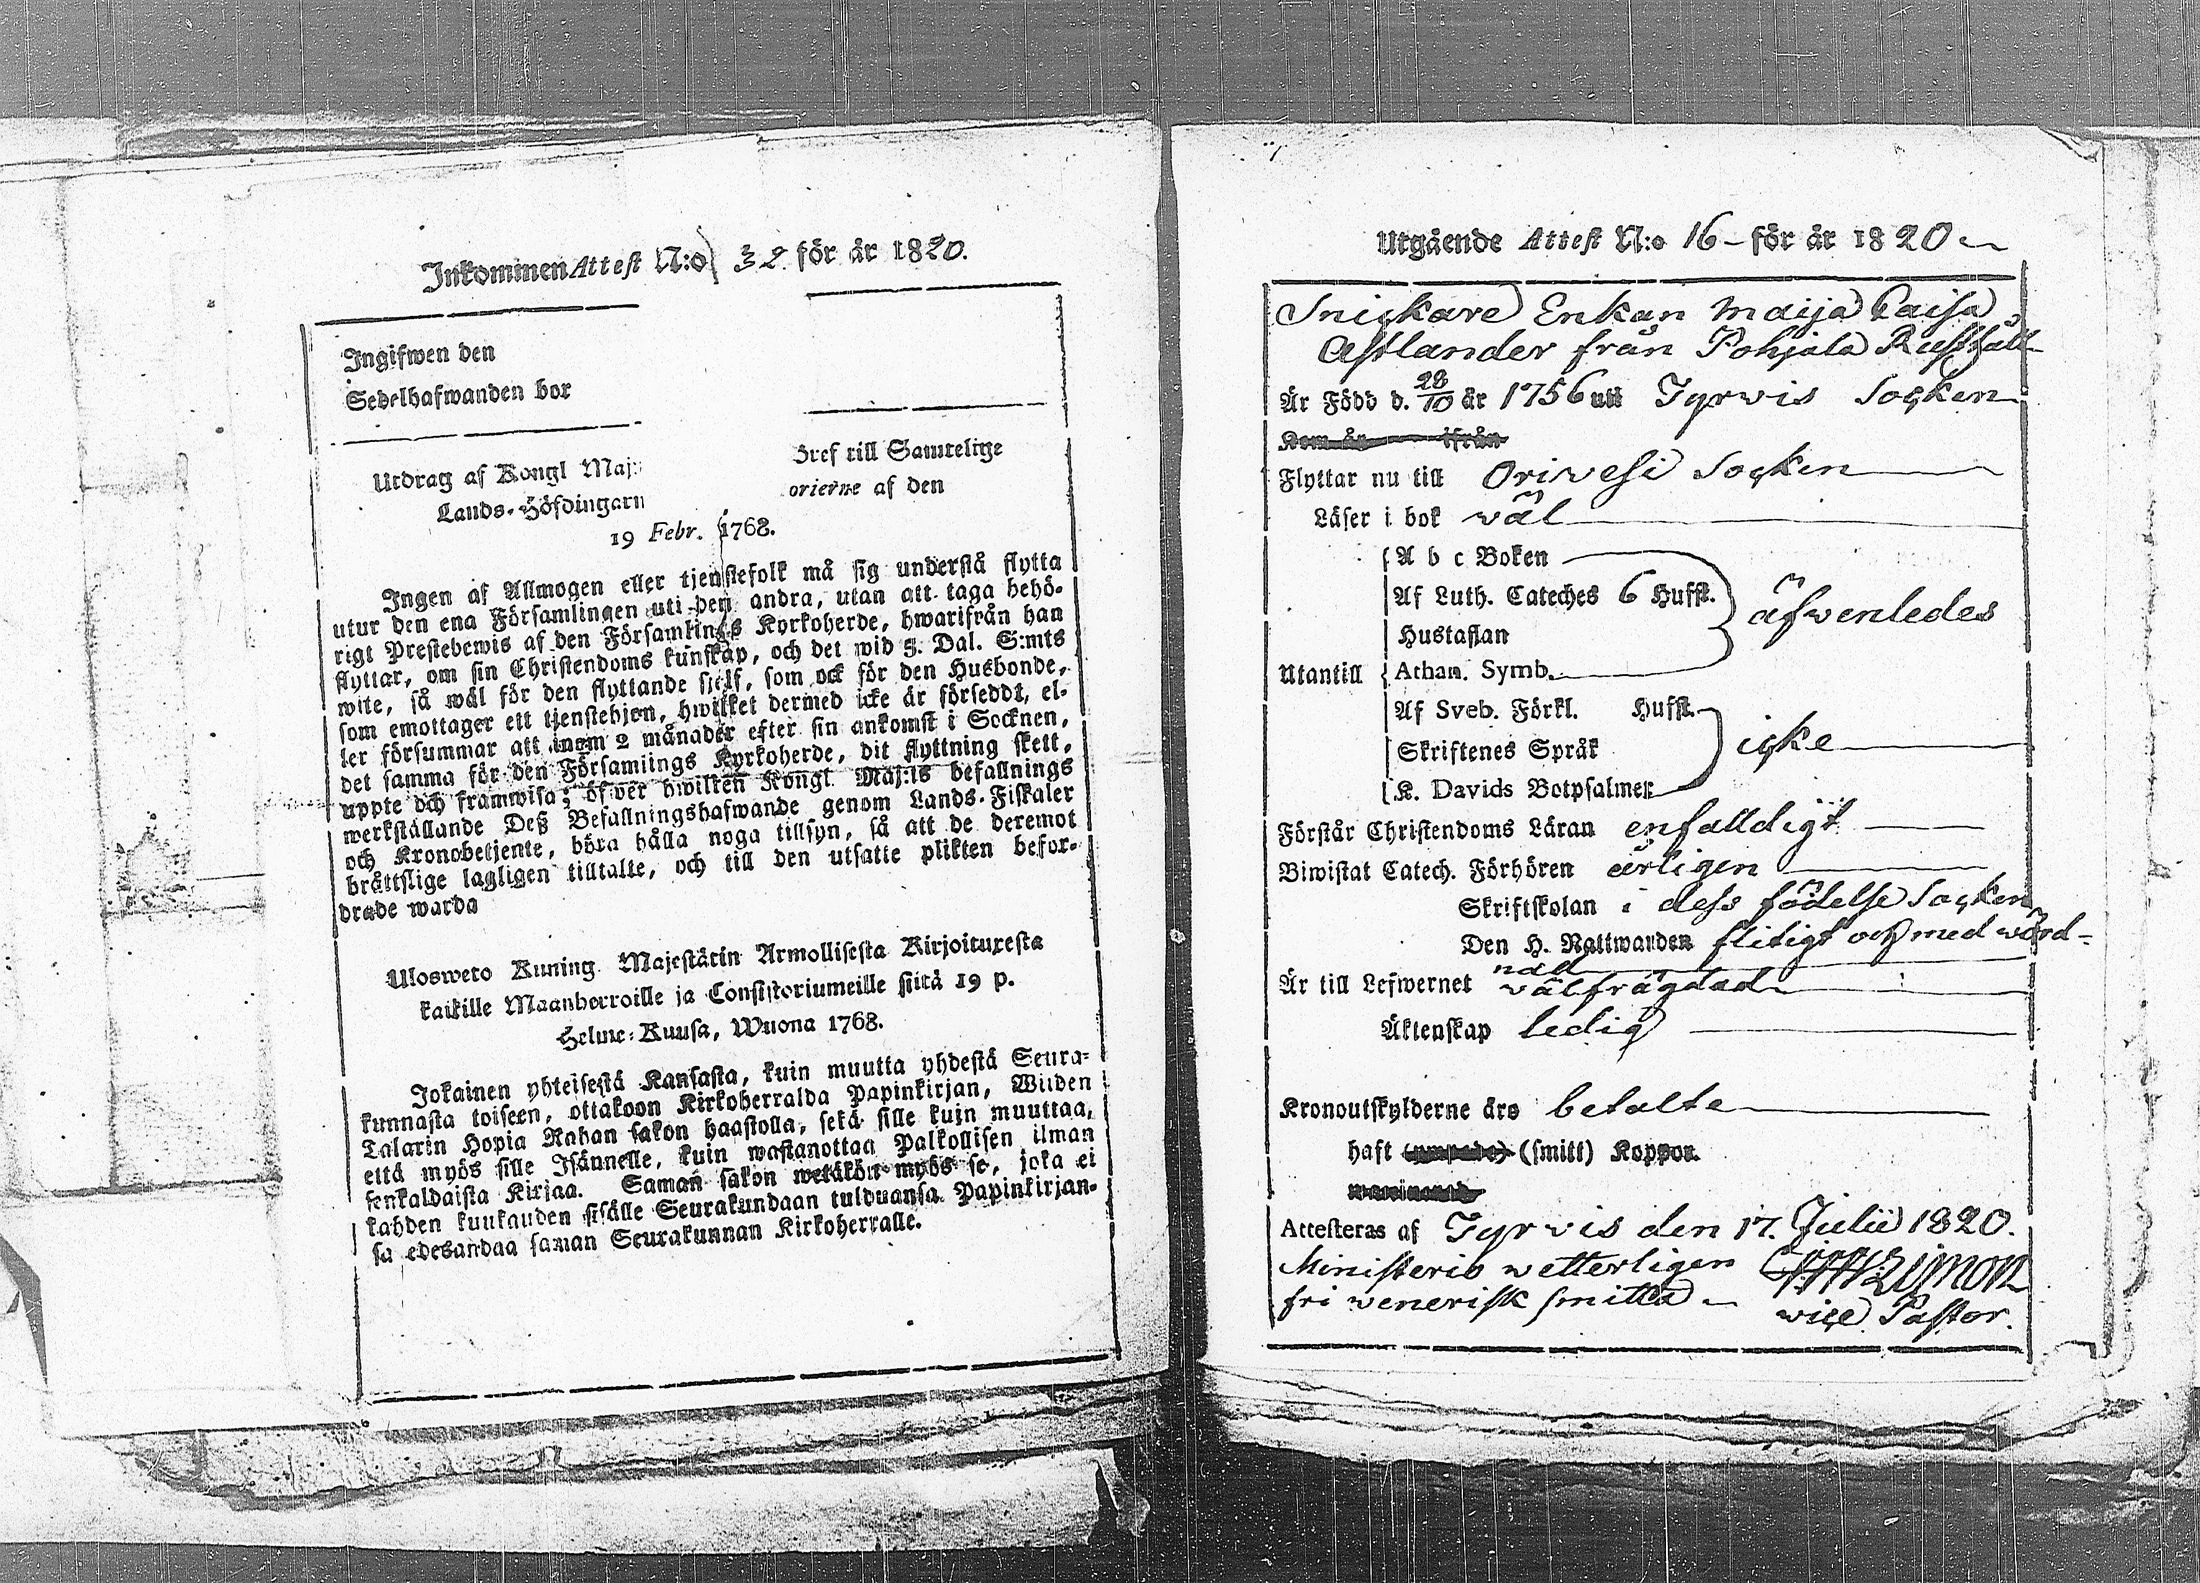 Inkommen Attest N:o 32. för år 1820.
Ingifwen den
Sedelhafwanden bor
Utdrag af Kongl Maj:
Bref till Samtelige
Lands-Höfdingarn
orierne af den
19 Febr. 1768.
Ingen af Allmogen eller tjenstefolk må sig understå flytta
utur den ena Församlingen uti den andra, utan att taga behö-
rigt Prestebewis af den Församlings Kyrkoherde, hwarifrån han
flyttar, om sin Christendoms kunskap, och det wid 3. Dal. S:mts
wite, så wäl för den flyttande sjelf, som ock för den Husbonde,
som emottager ett tjenstehjon, hwilket dermed icke är förseddt, el-
ler försummar att inom 2 månader efter sin ankomst i Socknen,
det samma för den Församlings Kyrkoherde, dit flyttning skett,
uppte och framwisa; öfwer hwilken Kongl Maj:ts befallnings
werkställande Deß Befallningshafwande genom Lands-Fiskaler
och Kronobetjente, böra hålla noga tillsyn, så att de deremot
bråttslige lagligen tilltalte, och till den utsatte plikten befor-
drade warda
Ulosweto Kuning. Majestätin Armollisesta Kirjoituxesta
kaikille Maanherroille ja Consistoriumeille siitä 19 p.
Helme-Kuusa, Wuona 1768.
Jokainen yhteisestä Kansasta, kuin muutta yhdestä Seura-
kunnasta toiseen, ottakoon Kirkoherralda Papinkirjan, Wiiden
Talarin Hopia Rahan sakon haastolla, sekä sille kuin muuttaa,
että myös sille Isännelle, kuin wastanottaa Palkollisen ilman
senkaldaista Kirjaa. Saman sakon wetäkön myös se, joka ei
kahden kuukauden sisälle Seurakundaan tulduansa Papinkirjan-
sa edesandaa saman Seurakunnan Kirkoherralle.
Utgående Attest N:o 16 - för år 1820
Snickare Enkan Maija Caisa
Astlander från Pohjala Rusthåll
Är Född d. 28/10 år 1756 utt Tyrwis Socken
Kom år ifrån
Flyttar nu till Orivesi Socken
Läser i bok wäl
A b c Boken
Af Luth. Cateches 6 Hufst.
äfwenledes
Hustaflan
Utantill
Athan. Symb.
Af Sveb. Förkl. Hufst.
Skriftenes Språk
icke
K. Davids Botpsalmer
Förstår Christendoms Läran enfalldigt
Biwistat Catech. Förhören årligen
Skriftskolan i dess födelse Socken
Den H. Nattwarden flitigt och med wörd-
nad
Är till Lefwernet wälfrägdad
Äktenskap ledig
Kronoutskylderne äro betalte
haft (ympade) (smitt) Koppor.
waccinerad
Attesteras af Tyrvis den 17. Julii 1820.
Ministerio wetterligen
fri wenerisk smitta
vice Pastor.